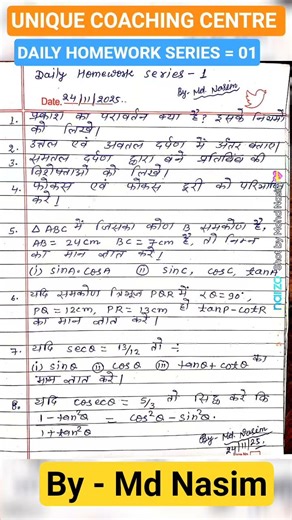 UNIQUE COACHING CENTRE
DAILY HOMEWORK SERIES = 01
Daily Homework series - 1
Date. 24/11/2025..
By- Md Nasim
1. प्रकाश का परावर्तन क्या है? इसके नियमों
को लिखें।
2. उत्तल एवं अवतल दर्पण में अंतर बताएं
3. समतल दर्पण द्वारा बने प्रतिबिंब की
विशेषताओं को लिखें।
4. फोकस एवं फोकस दूरी को परिभाषित
करें।
5. △ ABC में जिसका कोण B समकोण है,
AB = 24cm BC = 7cm है, तो निम्न
का मान ज्ञात करें।
(i) sinA. cosA (ii) sinC, cosC, tanA
6. यदि समकोण त्रिभुज PQR में ∠Q = 90°,
PQ = 12cm, PR = 13cm हो tanP - cotR
का मान ज्ञात करें।
7. यदि secθ = 13/12 तो ÷
(i) sinθ (ii) cosθ (iii) tanθ + cotθ का
मान ज्ञात करें।
8. यदि cosecθ = 5/3 तो सिद्ध करें कि
1 - tan²θ = cos²θ - sin²θ.
1 + tan²θ
By- Md Nasim
24/11/25.
By - Md Nasim